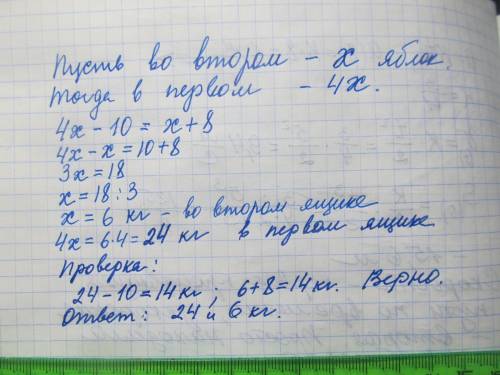 Пусть во втором - x яблок.
Тогда в первом - 4x.
4x - 10 = x + 8
4x - x = 10 + 8
3x = 18
x = 18 : 3
x = 6 кг - во втором ящике
4x = 6·4 = 24 кг в первом ящике
Проверка:
24 - 10 = 14 кг ; 6 + 8 = 14 кг. Верно.
Ответ: 24 и 6 кг.